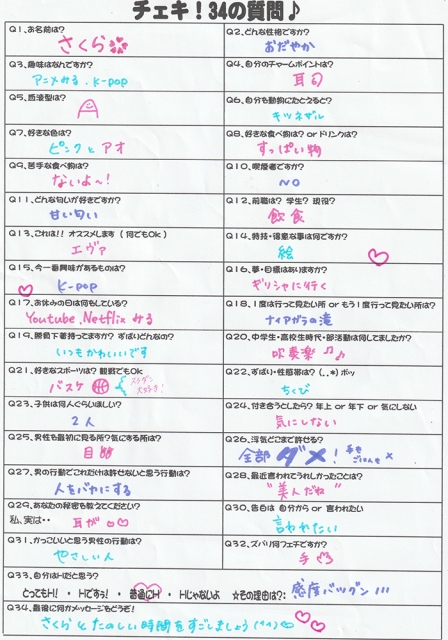 チェキ！34の質問♪
Q1、お名前は？ Q2、どんな性格ですか？
さくら おだやか
Q3、趣味はなんですか？ Q4、自分のチャームポイントは？
アニメみる、K-pop 耳
Q5、血液型は？ Q6、自分を動物にたとえると？
A キツネザル
Q7、好きな色は？ Q8、好きな食べ物は？ or ドリンクは？
ピンクとアオ すっぱい物
Q9、苦手な食べ物は？ Q10、喫煙者ですか？
ないよ～！ NO
Q11、どんな匂いが好きですか？ Q12、前職は？ 学生？ 現役？
甘い匂い 飲食
Q13、これは！！ オススメします（何でもOk） Q14、特技・得意な事は何ですか？
エヴァ 絵
Q15、今一番興味があるものは？ Q16、夢・目標はありますか？
K-pop ギリシャに行く
Q17、お休みの日は何をしている？ Q18、1度は行って見たい所 or もう1度行って見たい所は？
Youtube、Netflixみる ナイアガラの滝
Q19、勝負下着持ってますか？ ずばりどんなの？ Q20、中学生・高校生時代・部活動は何してましたか？
いつもかわいいです 吹奏楽♫♪
Q21、好きなスポーツは？ 観戦でもOk Q22、ずばり・性感帯は？ (..*) ポッ
バスケ ちくび
Q23、子供は何人ぐらいほしい？ Q24、付き合うとしたら？ 年上 or 年下 or 気にしない
2人 気にしない
Q25、男性を最初に見る所？気にする所は？ Q26、浮気どこまで許せる？
目 全部ダメ！
Q27、男の行動でこれだけは許せないと思う行動は？ Q28、最近言われてうれしかったことは？
人をバカにする "美人だね"
Q29、あなたの秘密を教えてください？ Q30、告白は 自分から or 言われたい
私、実は‥ 耳が 言われたい
Q31、かっこいいと思う男性の行動は？ Q32、ズバリ何フェチですか？
やさしい人 手
Q33、自分はHだと思う？
とってもH！ ・ Hですっ！ ・ 普通にH ・ Hじゃないよ ☆その理由は？： 感度バツグン!!!
Q34、最後に何かメッセージをどうぞ！
さくらとたのしい時間をすごしましょう(^^)